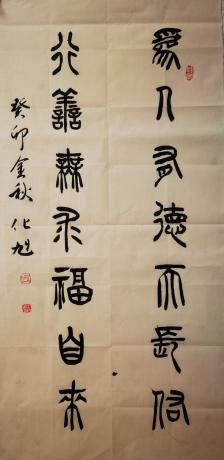 為人有德天長佑
行善無求福自來
癸卯金秋 化旭